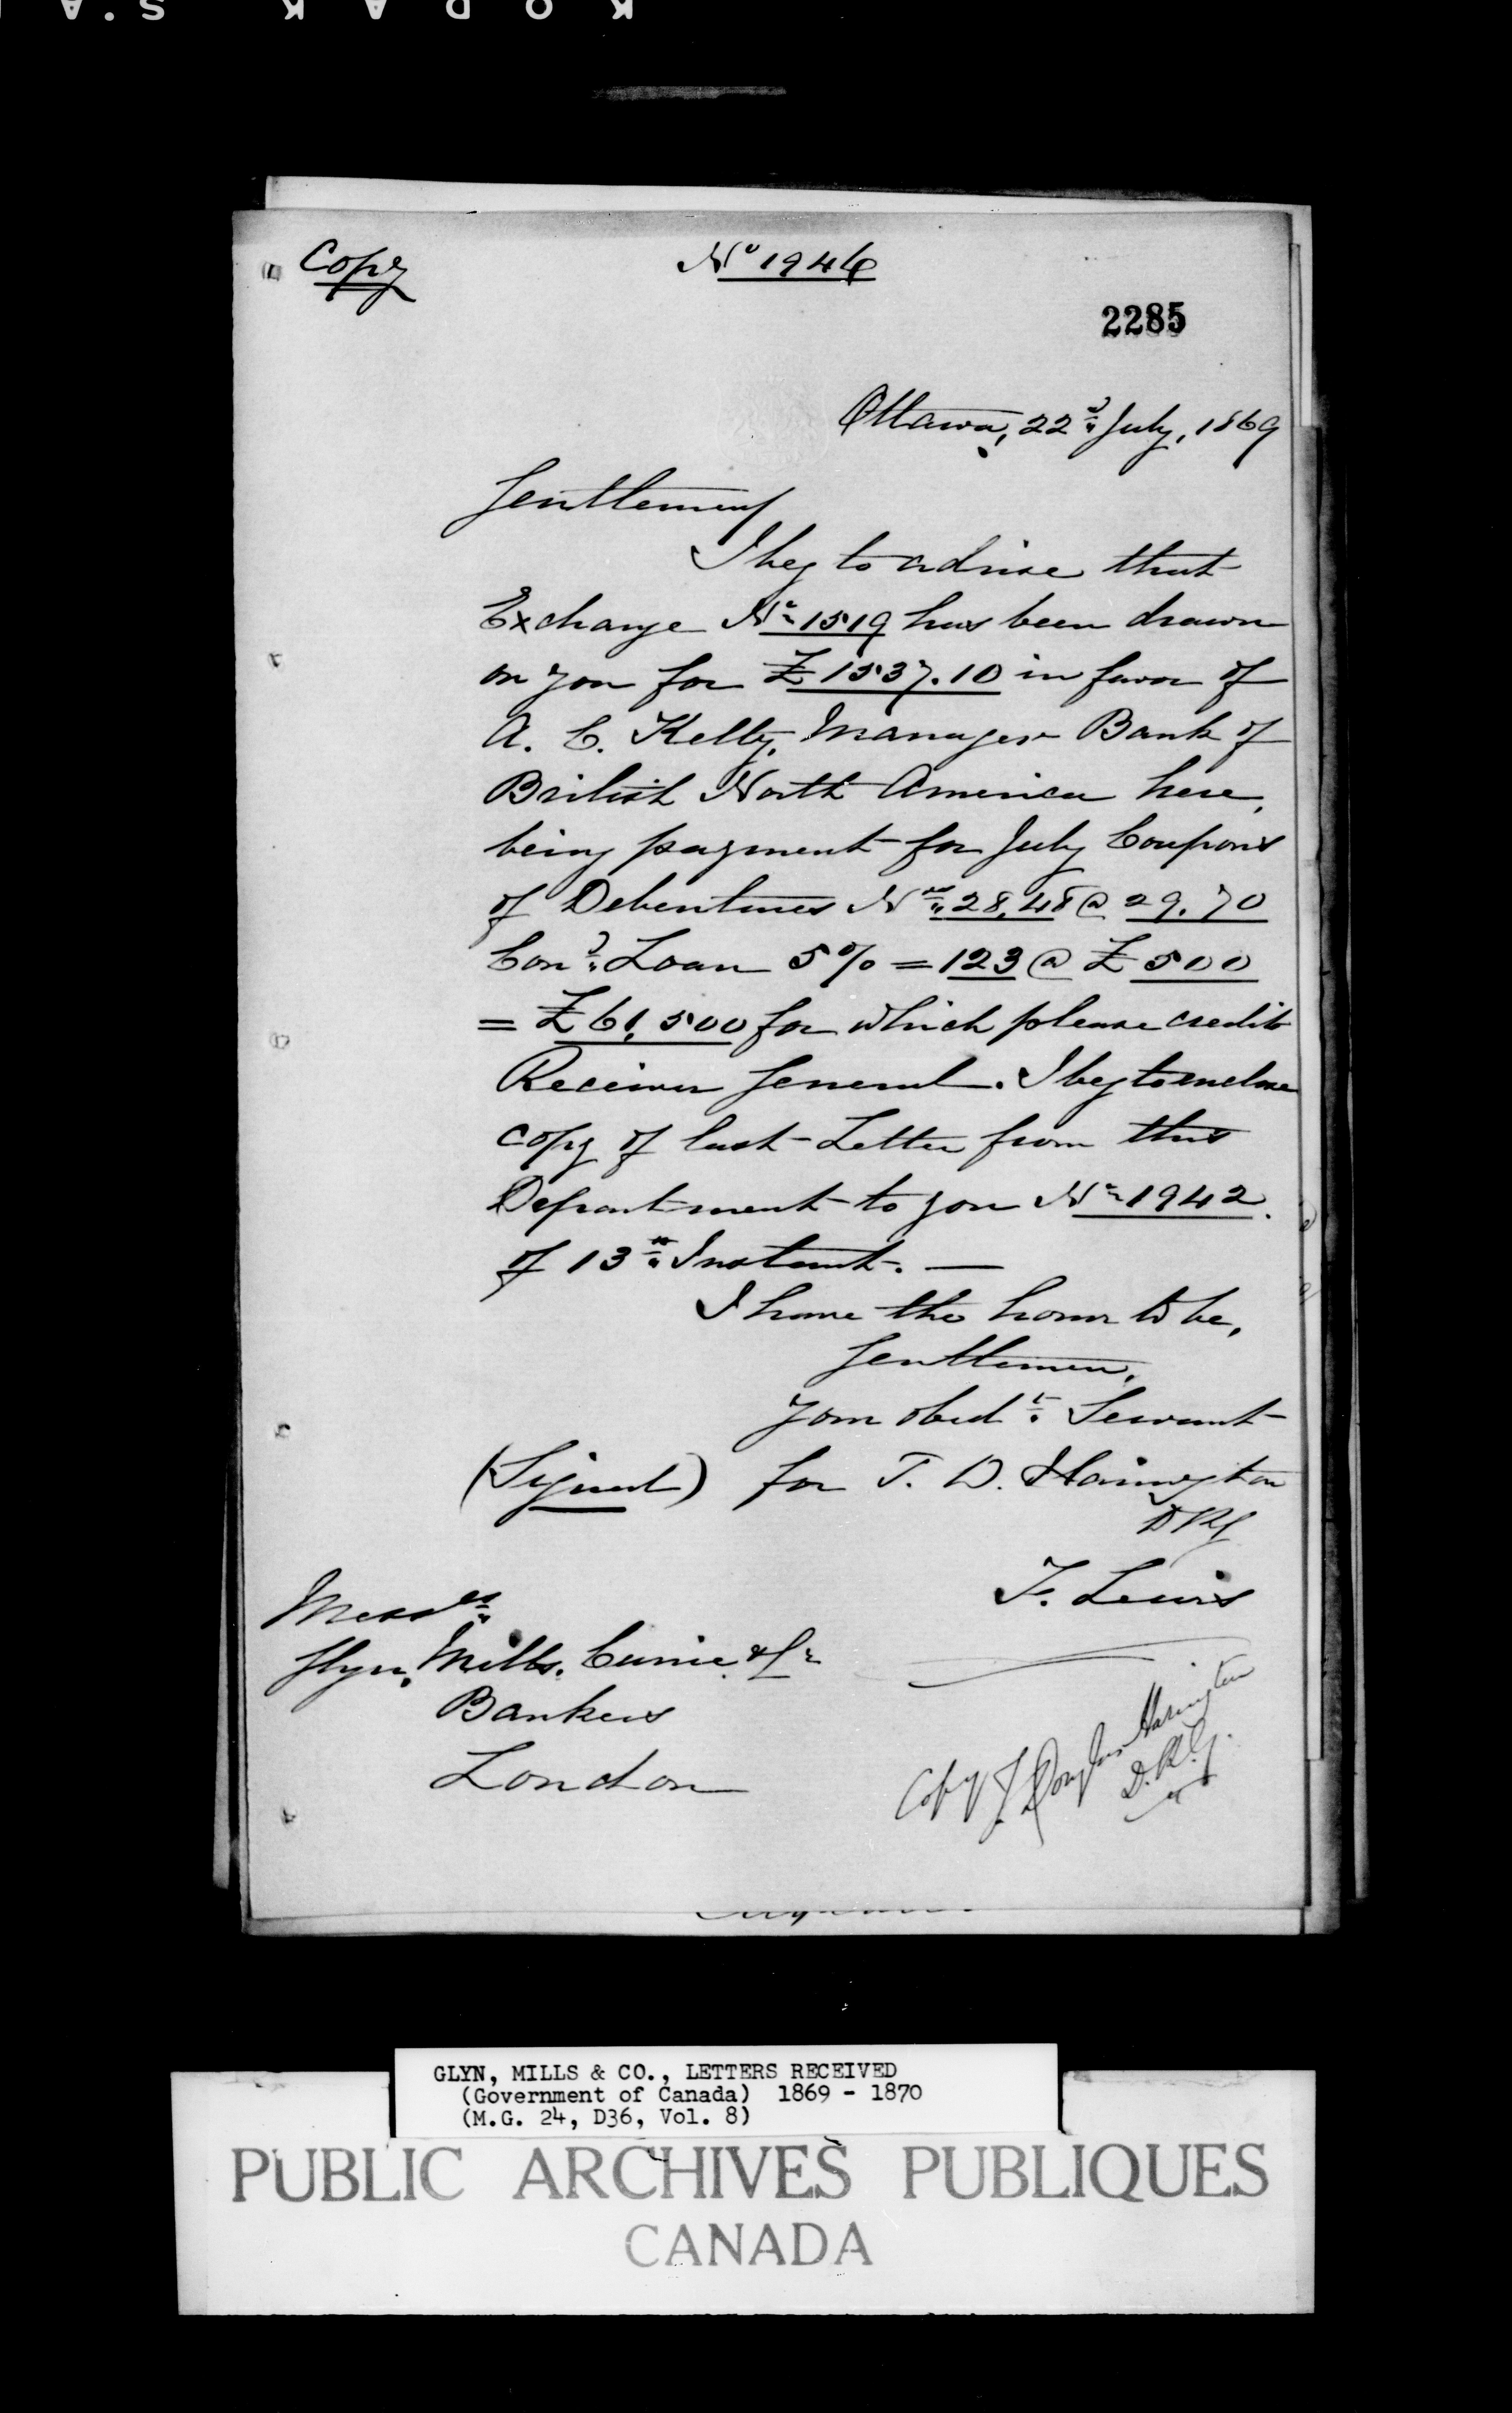 Copy
No 1946
2285
Ottawa, 22d July, 1869
Gentlemen
I beg to advise that
Exchange No 1519 has been drawn
on you for £1537.10 in favor of
A. C. Kelty, Manager Bank of
British North America here,
being payment for July Coupons
of Debentures Nos 28,48 @ 29.70
Cond Loan 5% = 123 @ £500
= £61,500 for which please credit
Receiver General. I beg to enclose
copy of last Letter from this
Department to you No 1942.
of 13th Instant. —
I have the honor to be,
Gentlemen,
Your obedt Servant
(Signed) for T. D. Harington
DRG
F. Lewis
Messrs
Glyn, Mills, Currie & Co
Bankers
London
Copy T Douglas Harington
D.R.G.
GLYN, MILLS & CO., LETTERS RECEIVED
(Government of Canada) 1869 - 1870
(M.G. 24, D36, Vol. 8)
PUBLIC ARCHIVES PUBLIQUES
CANADA